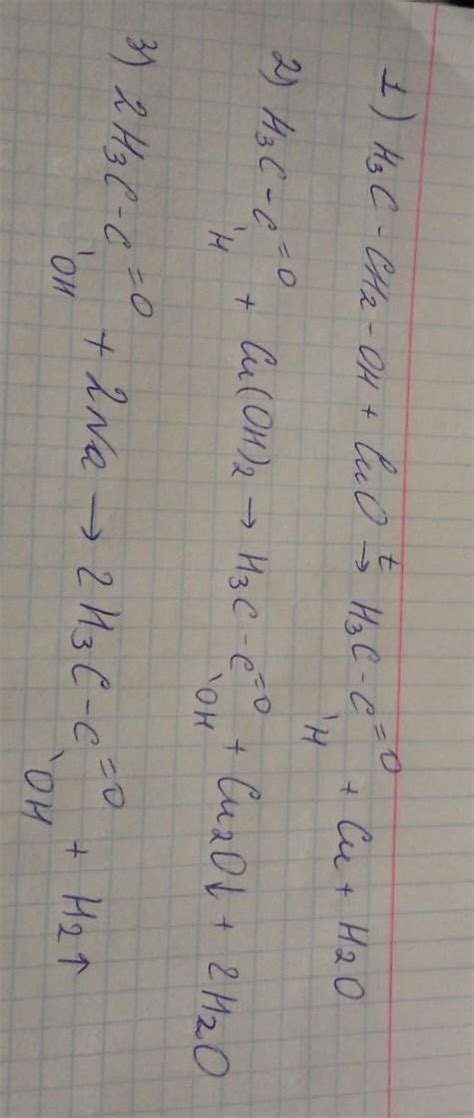 1) H₃C - CH₂ - OH + CuO →ᵗ H₃C - C = O + Cu + H₂O
'H
2) H₃C - C = O + Cu(OH)₂ → H₃C - C = O + Cu₂O↓ + 2H₂O
'H 'OH
3) 2H₃C - C = O + 2Na → 2H₃C - C = O + H₂↑
'OH 'OH